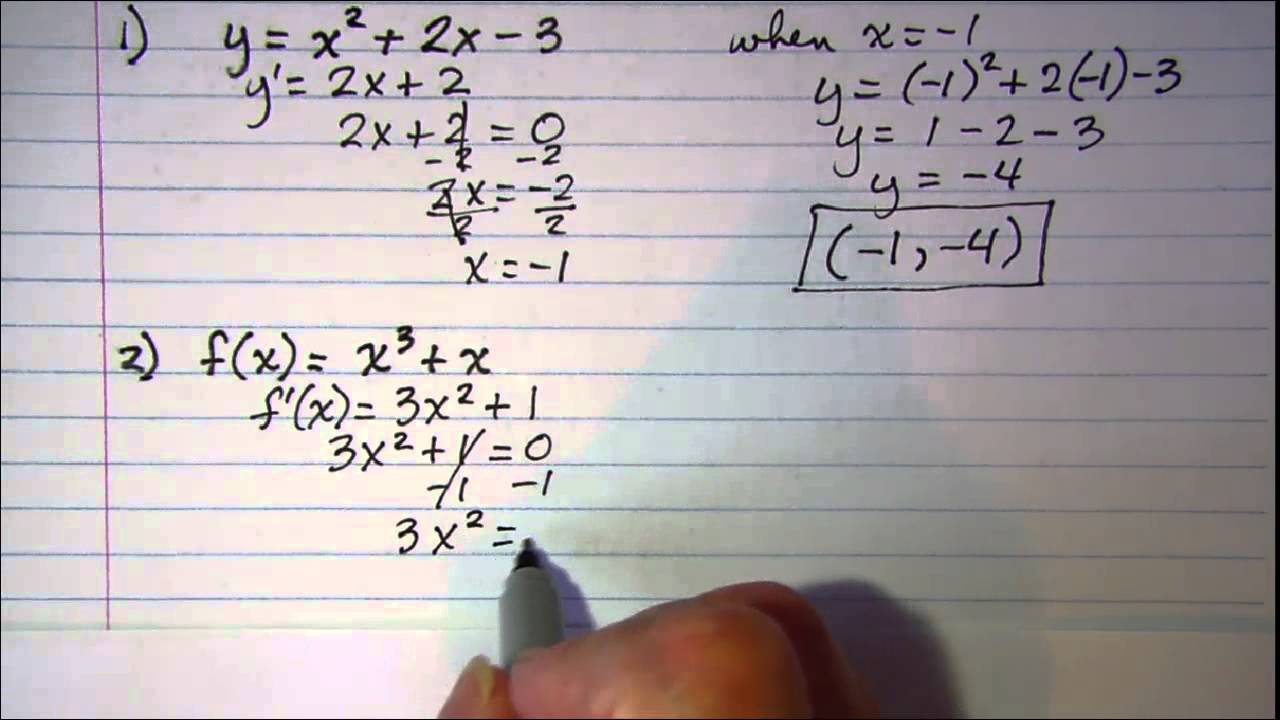 1) y = x² + 2x - 3
y' = 2x + 2
2x + 2 = 0
-2 -2
2x = -2
2 2
x = -1
when x = -1
y = (-1)² + 2(-1) - 3
y = 1 - 2 - 3
y = -4
(-1, -4)
2) f(x) = x³ + x
f'(x) = 3x² + 1
3x² + 1 = 0
-1 -1
3x² =